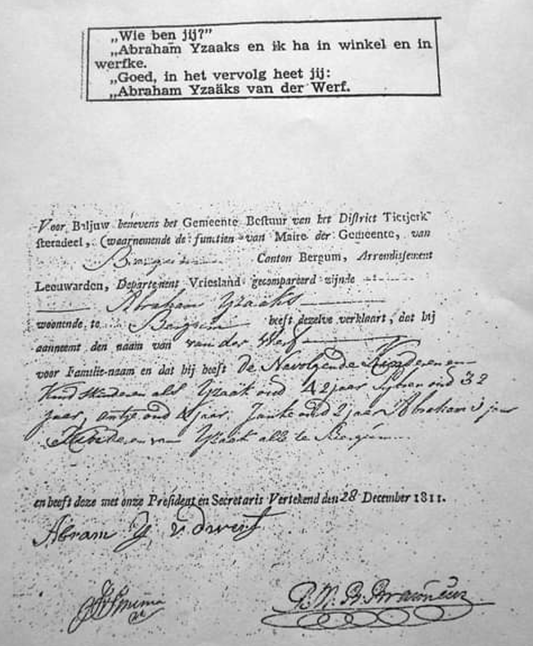 „Wie ben jij?"
„Abraham Yzaaks en ik ha in winkel en in
werfke.
„Goed, in het vervolg heet jij:
„Abraham Yzaäks van der Werf.
Voor Baljuw benevens het Gemeente Bestuur van het District Tietjerk
steradeel, (waarnemende de functien van Maire der Gemeente, van
Bergum Canton Bergum, Arrondissement
Leeuwarden, Departement Vriesland gecompareerd zijnde
Abraham Yzaaks
woonende te Bergum heeft dezelve verklaart, dat hij
aanneemt den naam van van der Werf
voor Familie-naam en dat hij heeft De Navolgende Kinderen en
Kinds Kinderen als Yzaak oud 42 jaar Symen oud 32
jaar, oud 4 jaar. Janke oud 2 jaar Abraham 3 jaar
Kinderen van Yzaak alle te Bergum
en heeft deze met onze President en Secretaris Vertekend den 28 December 1811.
Abram Y v d werf